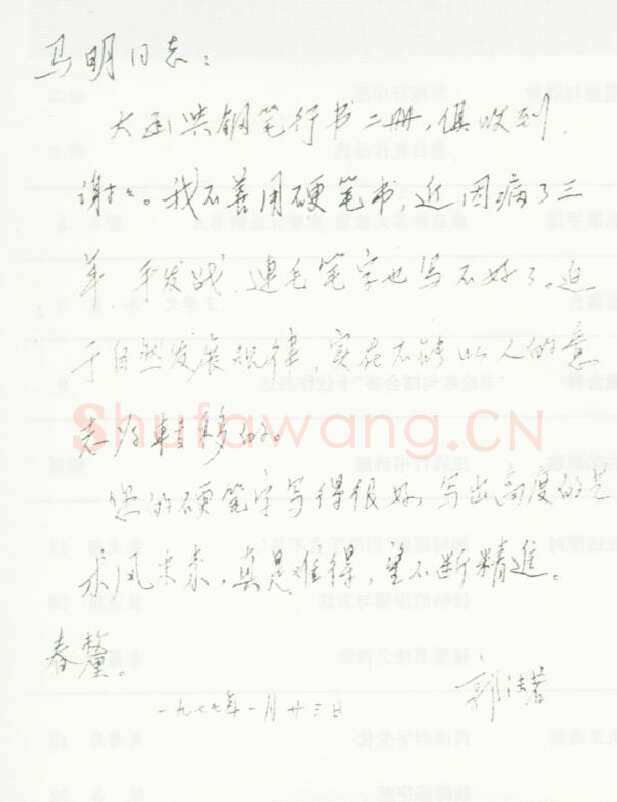 马明同志：
大函与钢笔行书二册，俱收到，
谢谢。我不善用硬笔书，近因病了三
年 手发战，连毛笔字也写不好了。迫
于自然发展规律，实在不能以人的意
志为转移的。
您的硬笔字写得很好，写出高度的艺
术风来，真是难得，望不断精进。
春釐。
郭沫若
一九七七年一月廿三日
Shufawang.CN